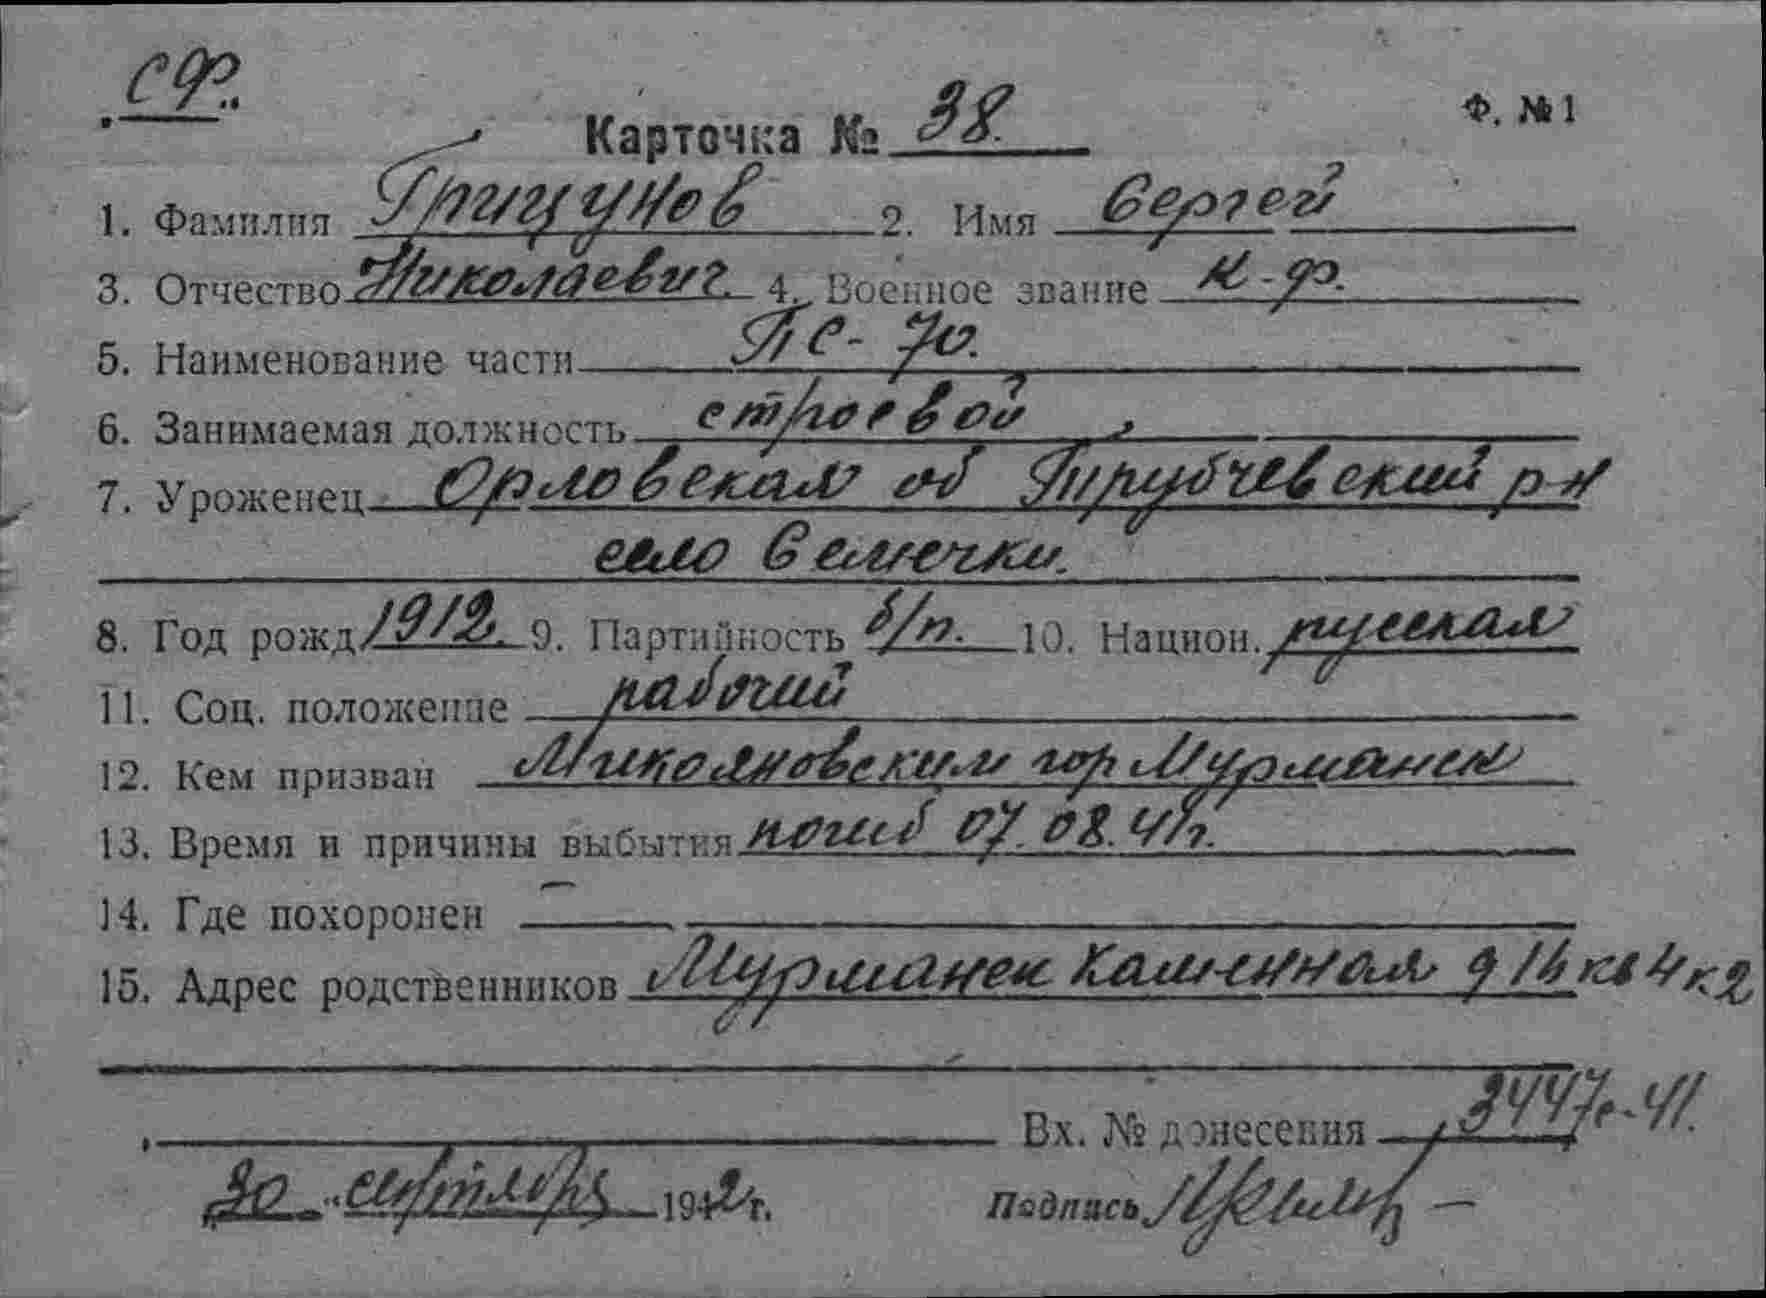 СФ.
Ф. № 1
Карточка № 38.
1. Фамилия Грицунов 2. Имя Сергей
3. Отчество Николаевич. 4. Военное звание к-ф.
5. Наименование части ПС-70.
6. Занимаемая должность строевой
7. Уроженец Орловская об Трубчевский р-н
село Семечки.
8. Год рожд 1912. 9. Партийность б/п. 10. Национ. русская
11. Соц. положение рабочий
12. Кем призван Микояновским гор Мурманск
13. Время и причины выбытия погиб 07.08.41г.
14. Где похоронен —
15. Адрес родственников Мурманск Каменная д 14 кв 4 к.2
Вх. № донесения 3447с-41.
30 " сентября 1942 г. Подпись